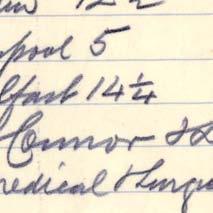 12½
pool 5
lfast 14¼
Connor &
medical & Surg